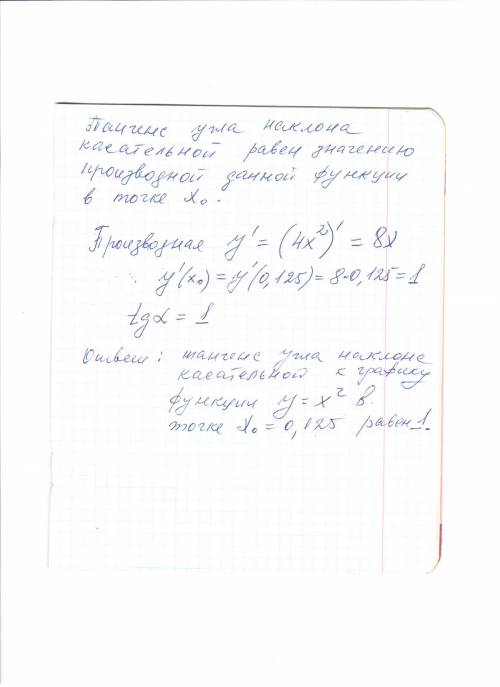 Тангенс угла наклона
касательной равен значению
производной данной функции
в точке x₀.
Производная y' = (4x²)' = 8x
y'(x₀) = y'(0,125) = 8·0,125 = 1
tgα = 1
Ответ: тангенс угла наклона
касательной к графику
функции y = x² в
точке x₀ = 0,125 равен 1.